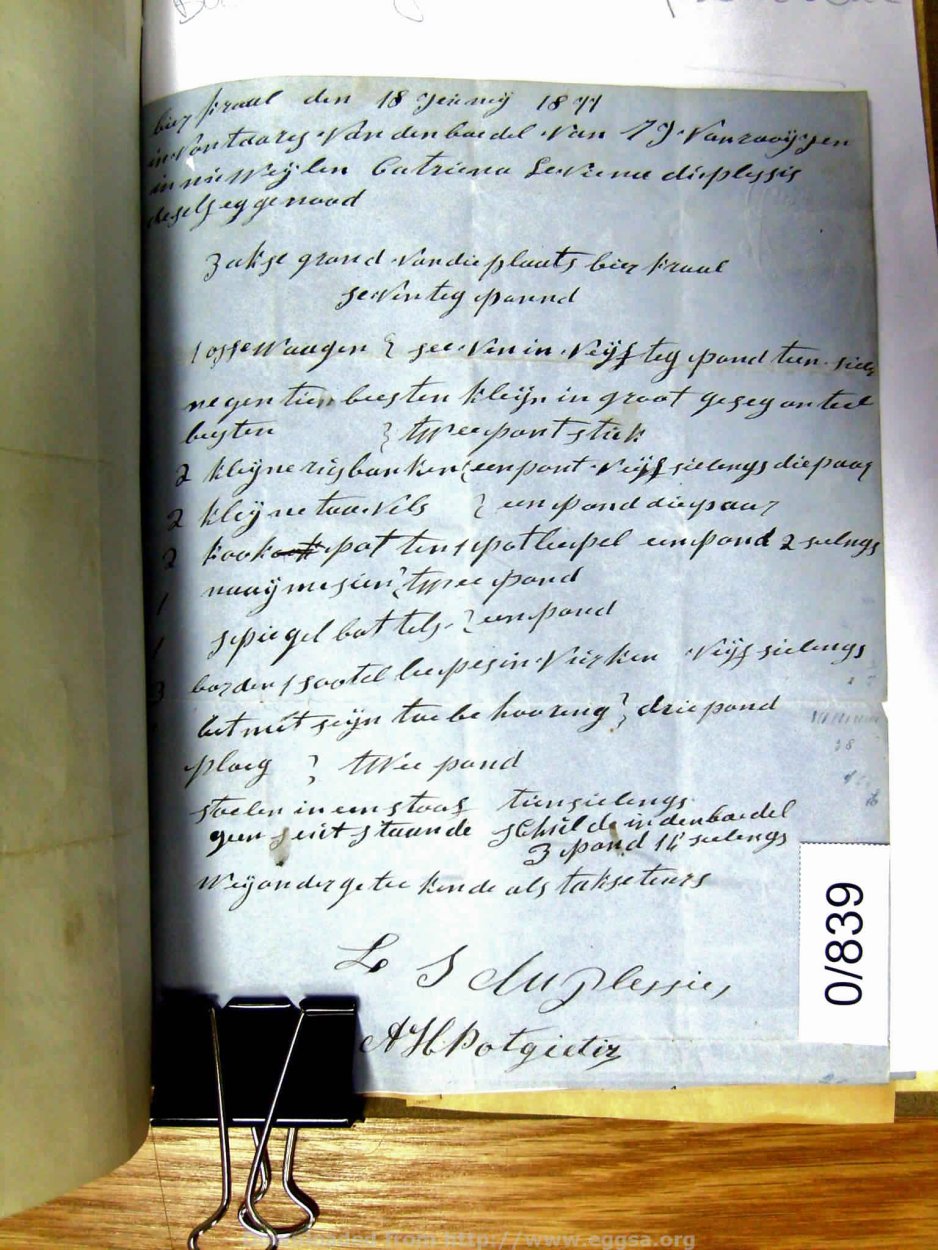 bier kraal den 18 Jeunij 1871
in Vontaary Van den boedel Van I J Vanrooijyen
in nu Weylen Catriena Seviena duplyssis
deselfs eggenood
3 akse grond Van die plaats bier kraal
seeventeg paund
1 osse Waagen } see Ven in Veijf teg pond tien siel
negen tien beesten kleijn in groot geseg onteel
beesten } twee pont stiek
2 kleyne rusbanken een pont Veijf sielengs die paar
2 kleyne taavels } een pond die paar
2 kook pot tens potleepel een pond 2 sielngs
1 naaij mesien } twee pond
1 spiegel bottels } een pond
3 borden 1 sootel leepes in Vurken Veijf sielengs
met seijn toebehooreng } drie pond
ploeg } twee pond
stoelen in een stoof tien sielengs
geen eeitstaande schilde in den boedel
3 pond 14 sielengs
Weij ondergeteekende als takseteurs
L J duplessies
A H Potgieter
0/839
from http://www.eggsa.org